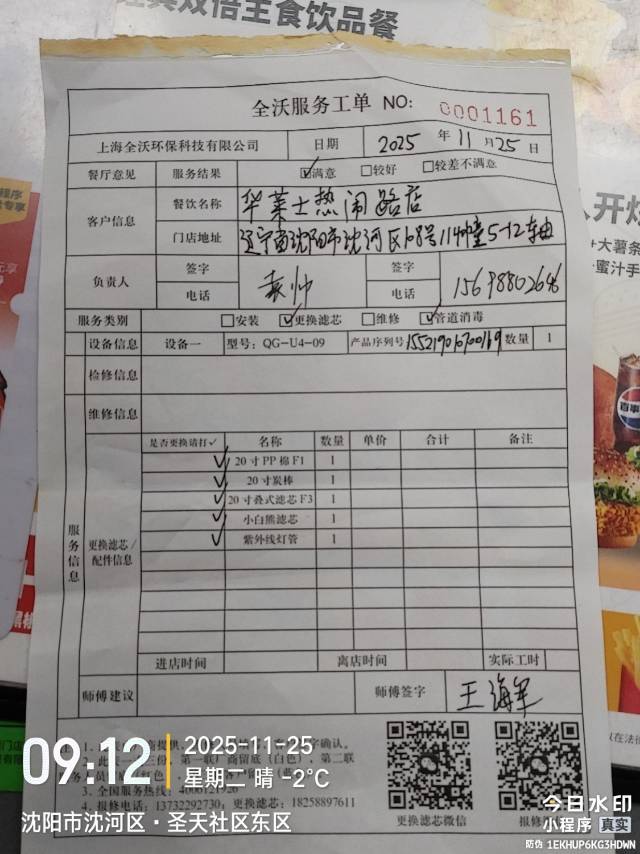 经典双倍主食饮品餐
全沃服务工单 NO: 0001161
上海全沃环保科技有限公司 日期 2025 年 11 月 25 日
餐厅意见 服务结果 ☑满意 □较好 □较差不满意
客户信息 餐饮名称 华莱士热闹路店
门店地址 辽宁省沈阳市沈河区168号114幢5-12车由
负责人 签字 袁帅 签字
电话 电话 15698802696
服务类别 □安装 ☑更换滤芯 □维修 ☑管道消毒
设备信息 设备一 型号: QG-U4-09 产品序列号 数量 1
检修信息
维修信息
服务信息
更换滤芯/配件信息
是否更换请打✓ 名称 数量 单价 合计 备注
✓ 20寸PP棉F1 1
✓ 20寸炭棒 1
✓ 20寸叠式滤芯F3 1
✓ 小白熊滤芯 1
✓ 紫外线灯管 1
进店时间 离店时间 实际工时
师傅建议 师傅签字 王海军
3. 全国服务热线: 4000121920
4. 报修电话: 13732292730; 更换滤芯: 18258897611
更换滤芯微信
09:12 2025-11-25
星期二 晴 -2℃
沈阳市沈河区·圣天社区东区
今日水印
小程序 真实
防伪 1EKHUP6KG3HDWN
人开炫
+大薯条
蜜汁手
百事